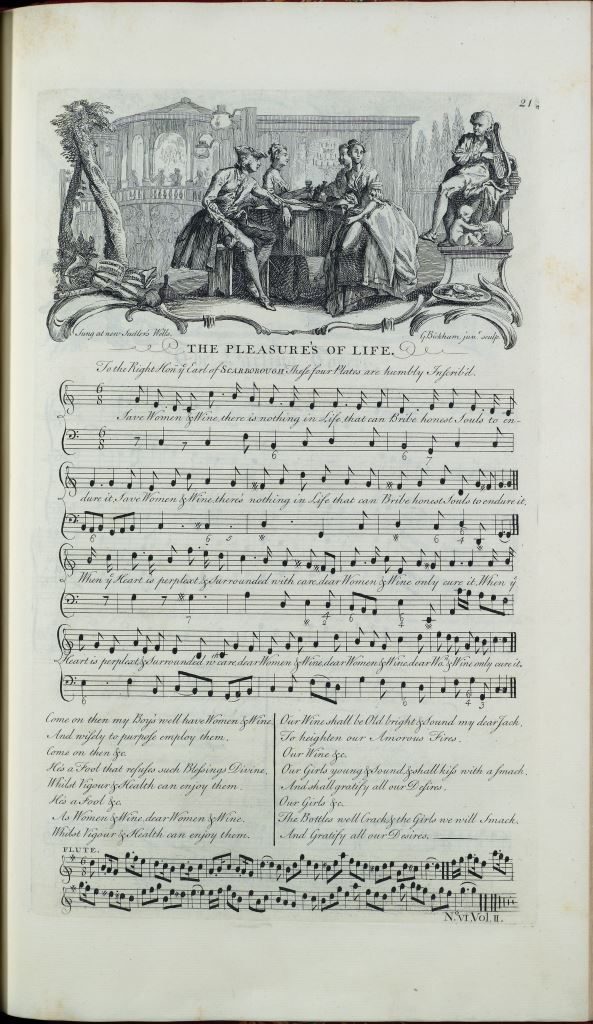 21
Sung at new Sadler's Wells.
G. Bickham, junr. sculp.
THE PLEASURE'S OF LIFE.
To the Right Hon ye Earl of SCARBOROUGH These four Plates are humbly Inscrib'd.
Save Women & Wine, there is nothing in Life, that can Bribe honest Souls to en-
dure it, Save Women & Wine, there's nothing in Life that can Bribe honest Souls to endure it,
When ye Heart is perplext & Surrounded with care, dear Women & Wine only cure it, When ye
Heart is perplext & Surrounded wth care, dear Women & Wine, dear Women & Wine, dear Wo: & Wine only cure it.
Come on then my Boys we'll have Women & Wine
And wisely to purpose employ them.
Come on then &c.
He's a Fool that refuses such Blessings Divine,
Whilst Vigour & Health can enjoy them.
He's a Fool &c.
As Women & Wine, dear Women & Wine.
Whilst Vigour & Health can enjoy them.
Our Wine shall be Old bright & Sound my dear Jack,
To heighten our Amorous Fires.
Our Wine &c.
Our Girls young & Sound, & shall kiss with a smack,
And shall gratify all our Desires.
Our Girls &c.
The Bottles we'll Crack & the Girls we will Smack,
And Gratify all our Desires.
FLUTE.
No. VI. Vol. II.